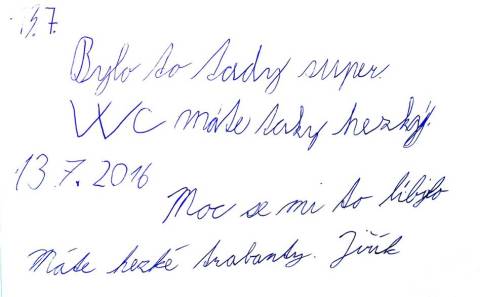 13.7.
Bylo to tady super.
WC máte taky hezký.
13.7.2016
Moc se mi to líbylo
Máte hezké trabanty. Jiřík